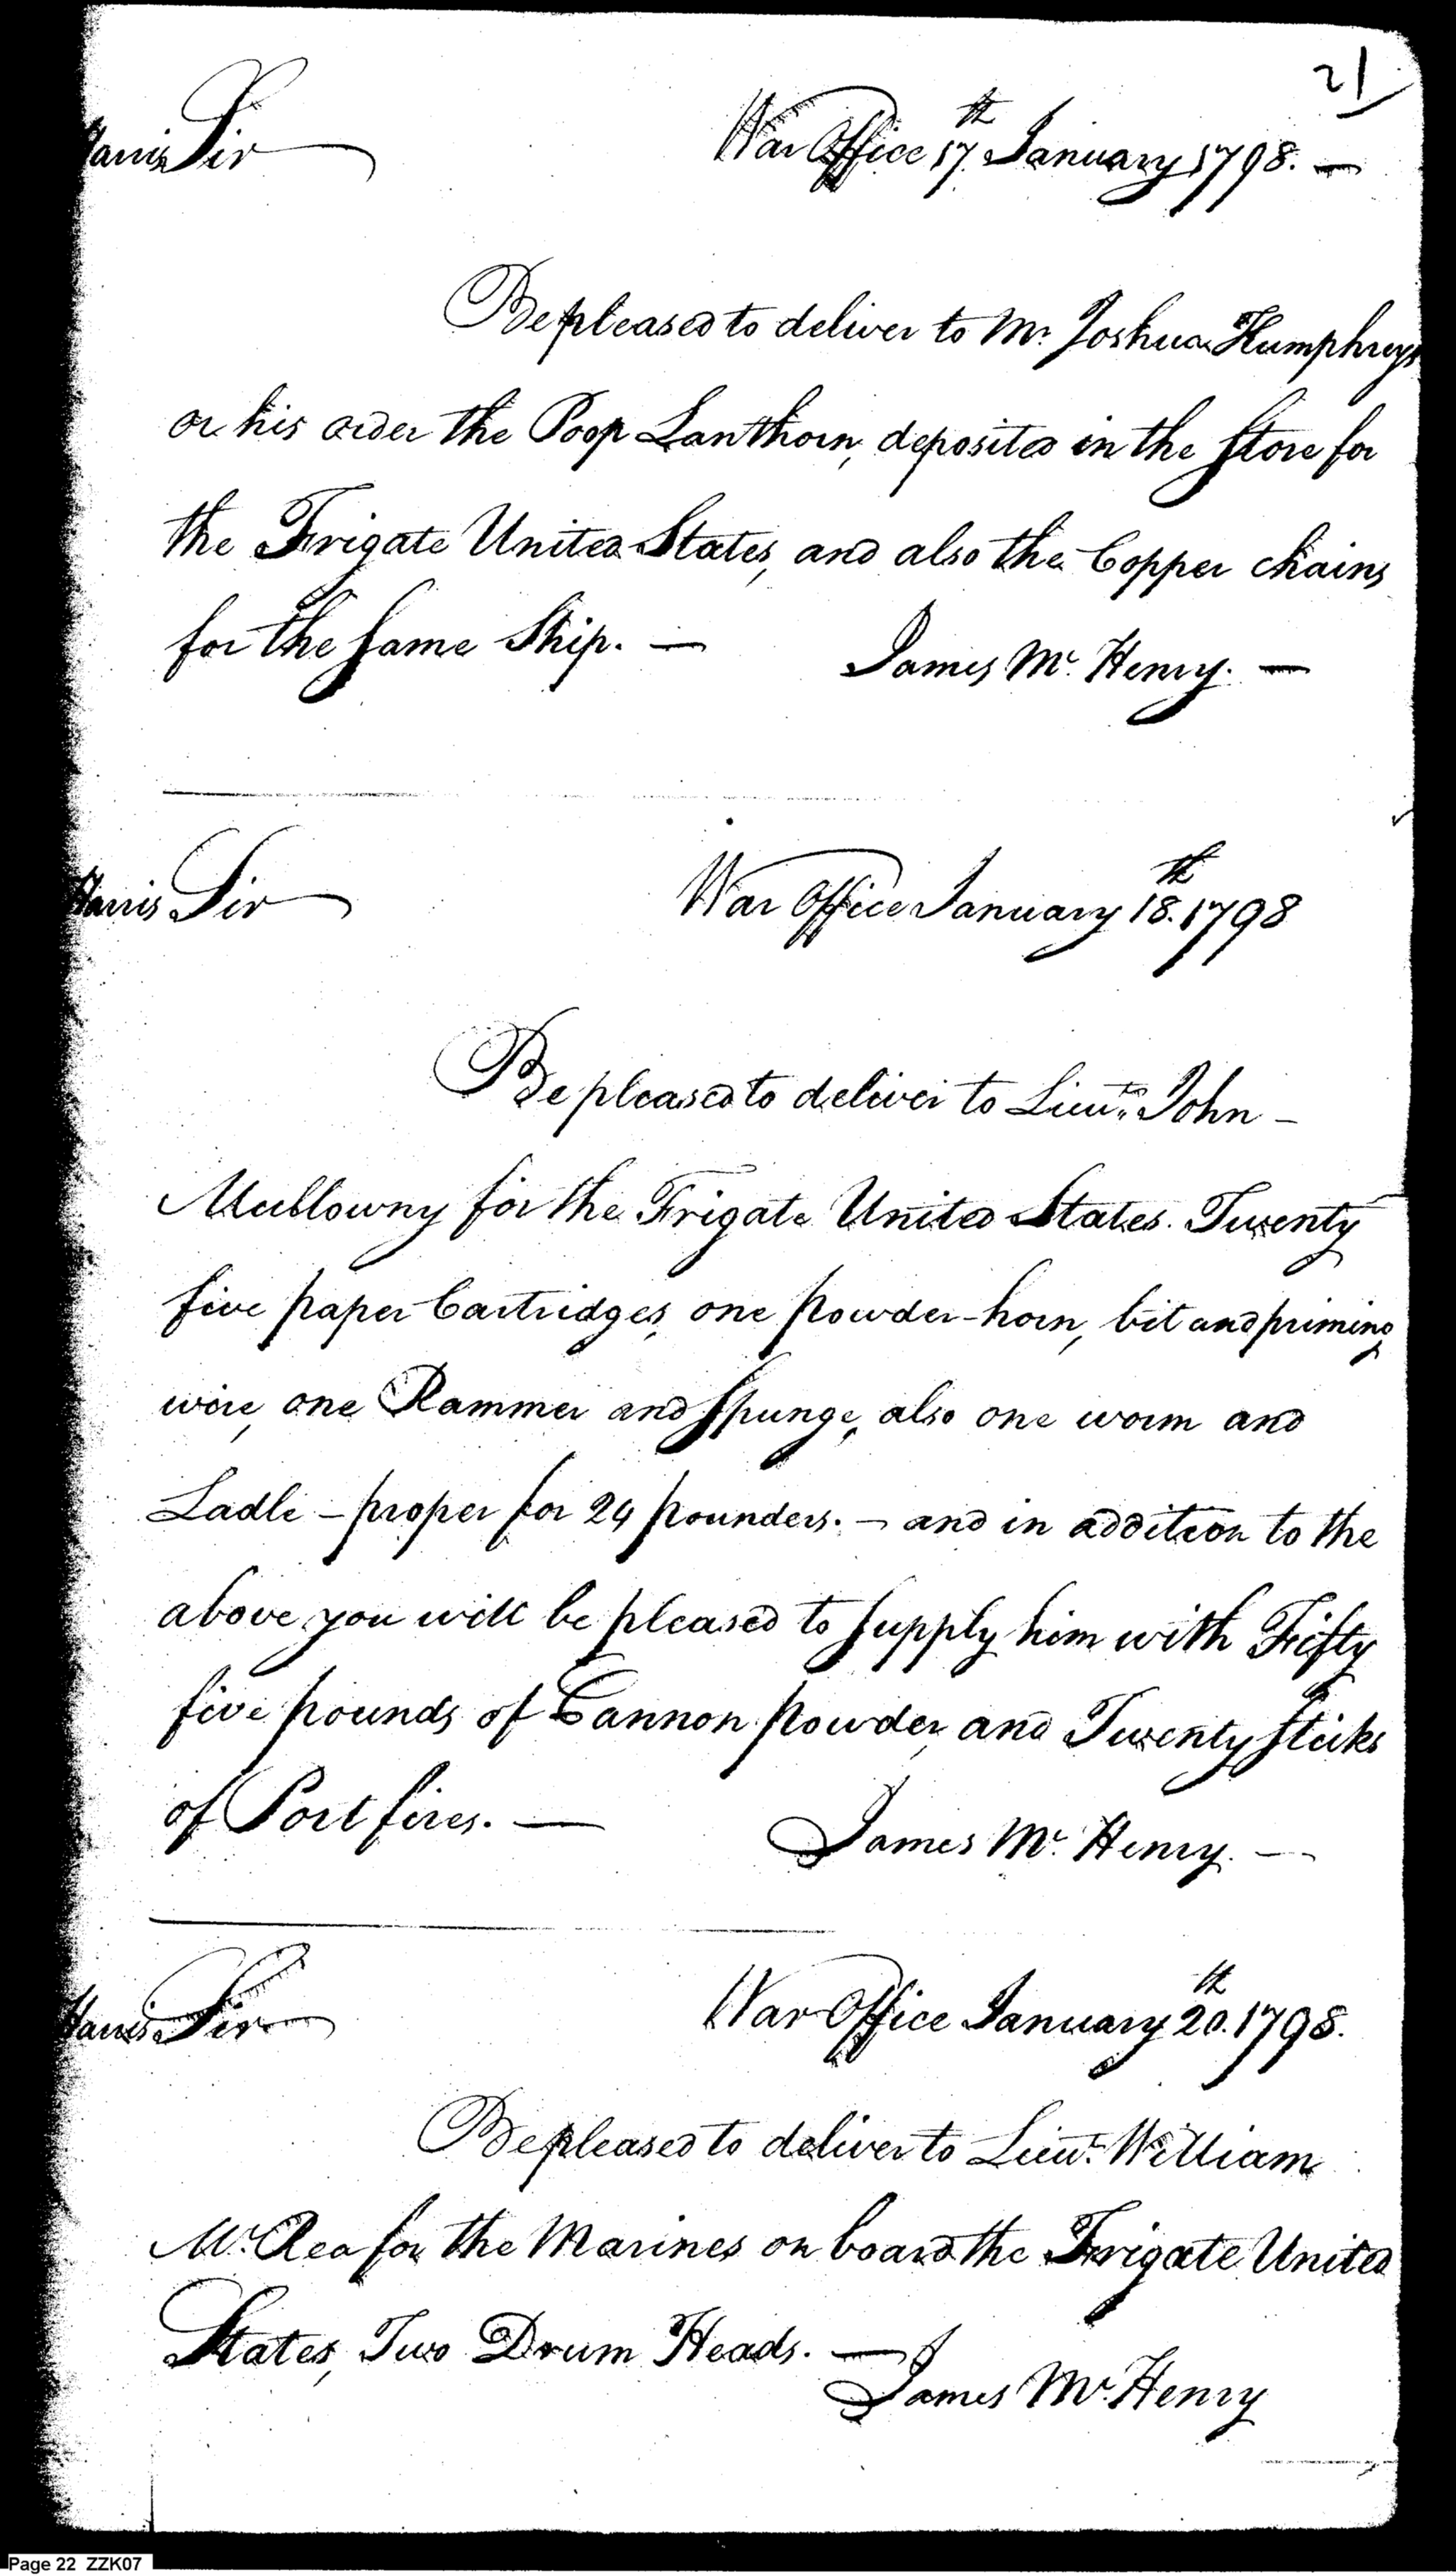 21
Harris Sir War Office 17th January 1798. —
Be pleased to deliver to Mr. Joshua Humphreys
or his order the Poop Lanthorn, deposited in the Store for
the Frigate United States, and also the Copper chains
for the same Ship. — James Mc. Henry. —
Harris Sir War Office January 18th. 1798
Be pleased to deliver to Lieut. John -
Mullowny for the Frigate United States. Twenty
five paper Cartridges, one powder-horn, bit and priming
wire, one Rammer and Spunge, also one worm and
Ladle - proper for 24 pounders. - and in addition to the
above you will be pleased to supply him with Fifty
five pounds of Cannon powder, and Twenty sticks
of Port fires. — James Mc. Henry. —
Harris Sir War Office January 20th. 1798.
Be pleased to deliver to Lieut. William
Mc. Rea for the Marines on board the Frigate United
States, Two Drum Heads. —
James Mc. Henry
Page 22 ZZK07